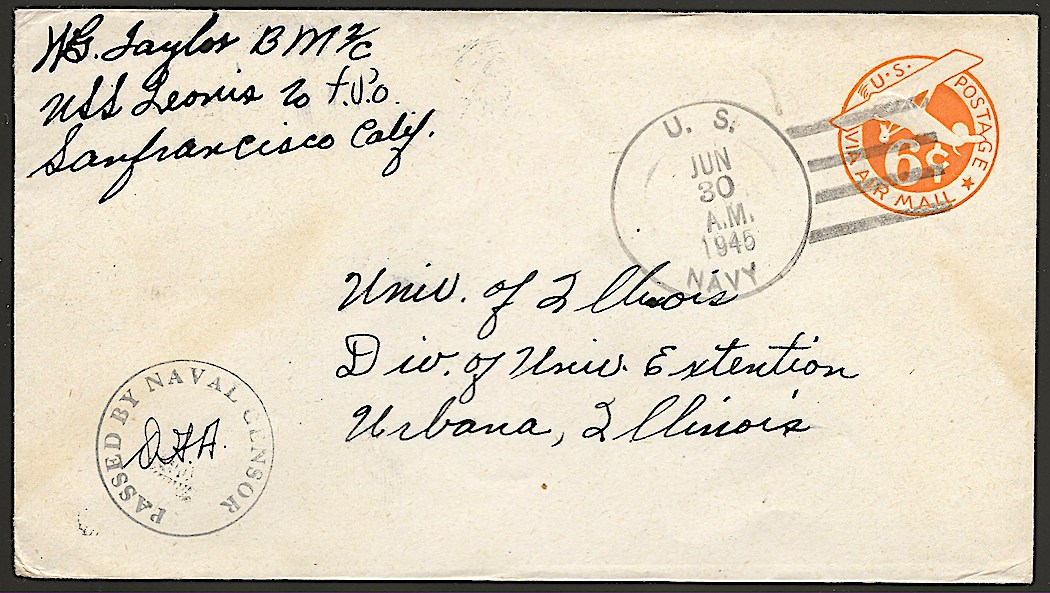 W.G. Taylor BM2/c
USS Leonis c/o F.P.O.
Sanfrancisco Calif.
U.S. POSTAGE
6¢
VIA AIR MAIL
U. S.
JUN
30
A.M.
1945
NAVY
Univ. of Illinois
Div. of Univ. Extention
Urbana, Illinois
PASSED BY NAVAL CENSOR